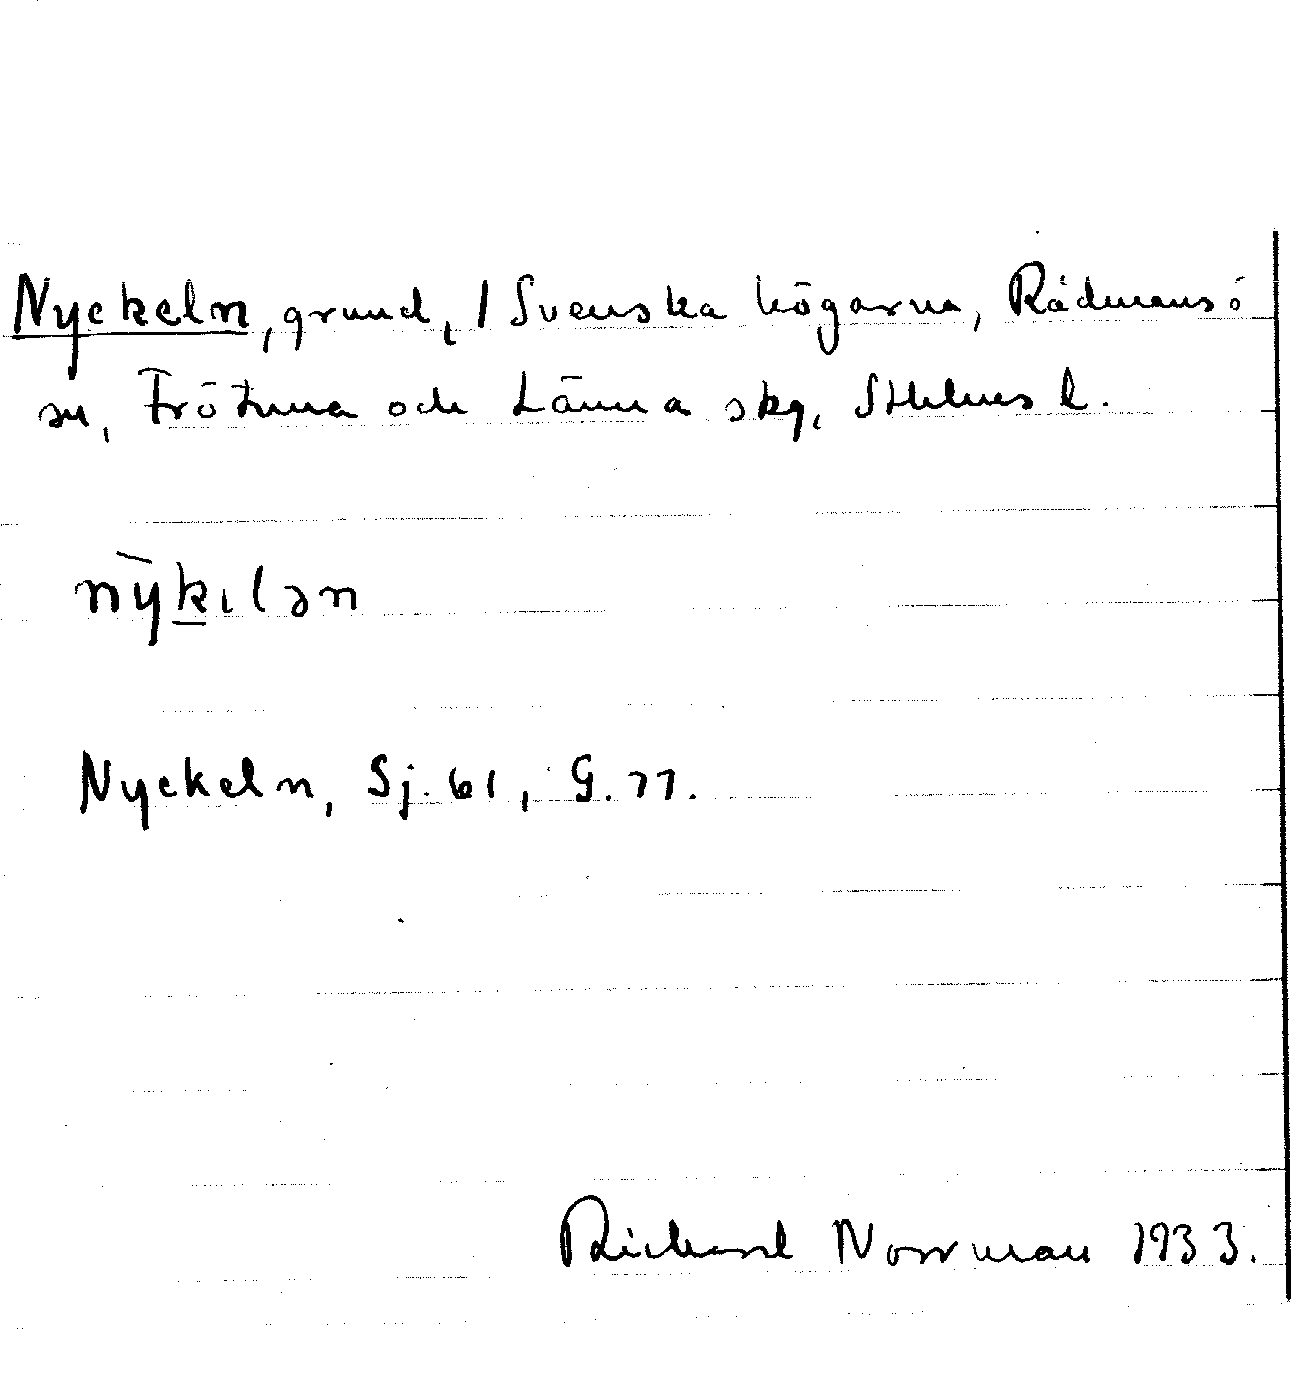 Nyckeln, grund, / Svenska högarna, Rådmansö
sn, Frötuna och Länna skg, Sthlms l.
nȳk̲ılən
Nyckeln, Sj. 61, G. 77.
Rickard Norrman 1933.